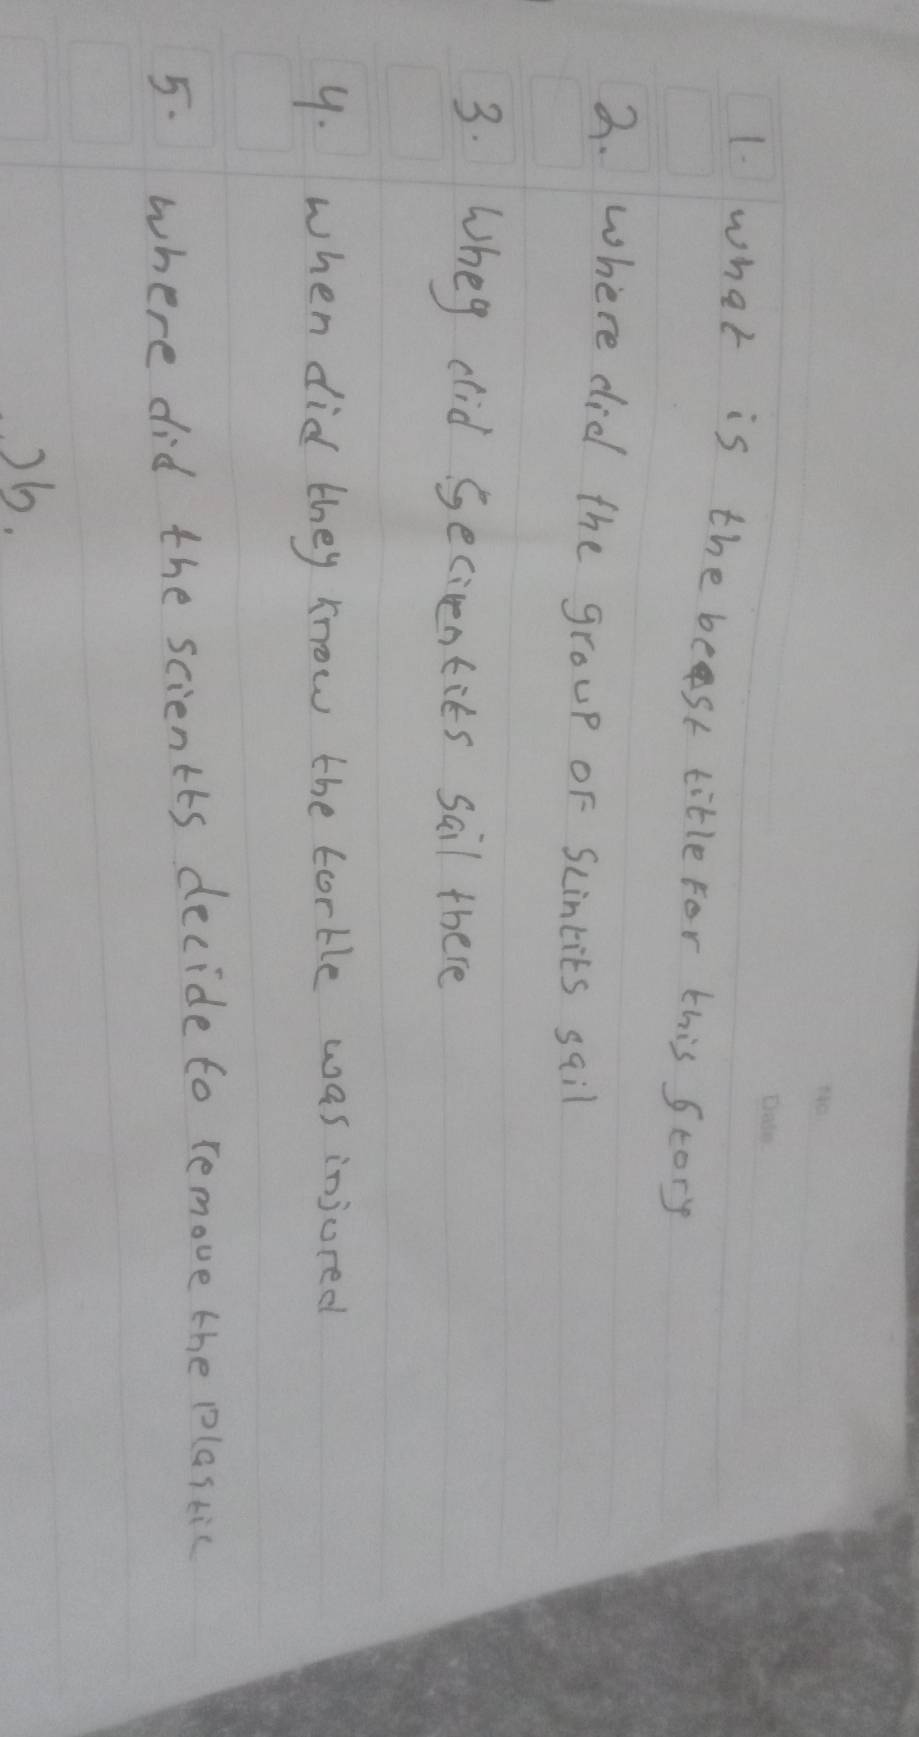 No.
Date
1. what is the beast title For this story
2. where did the group OF scintits sail
3. Wheg did Secirentits sail there
4. when did they know the tortle was injured
5. where did the scientts decide to remove the Plastic